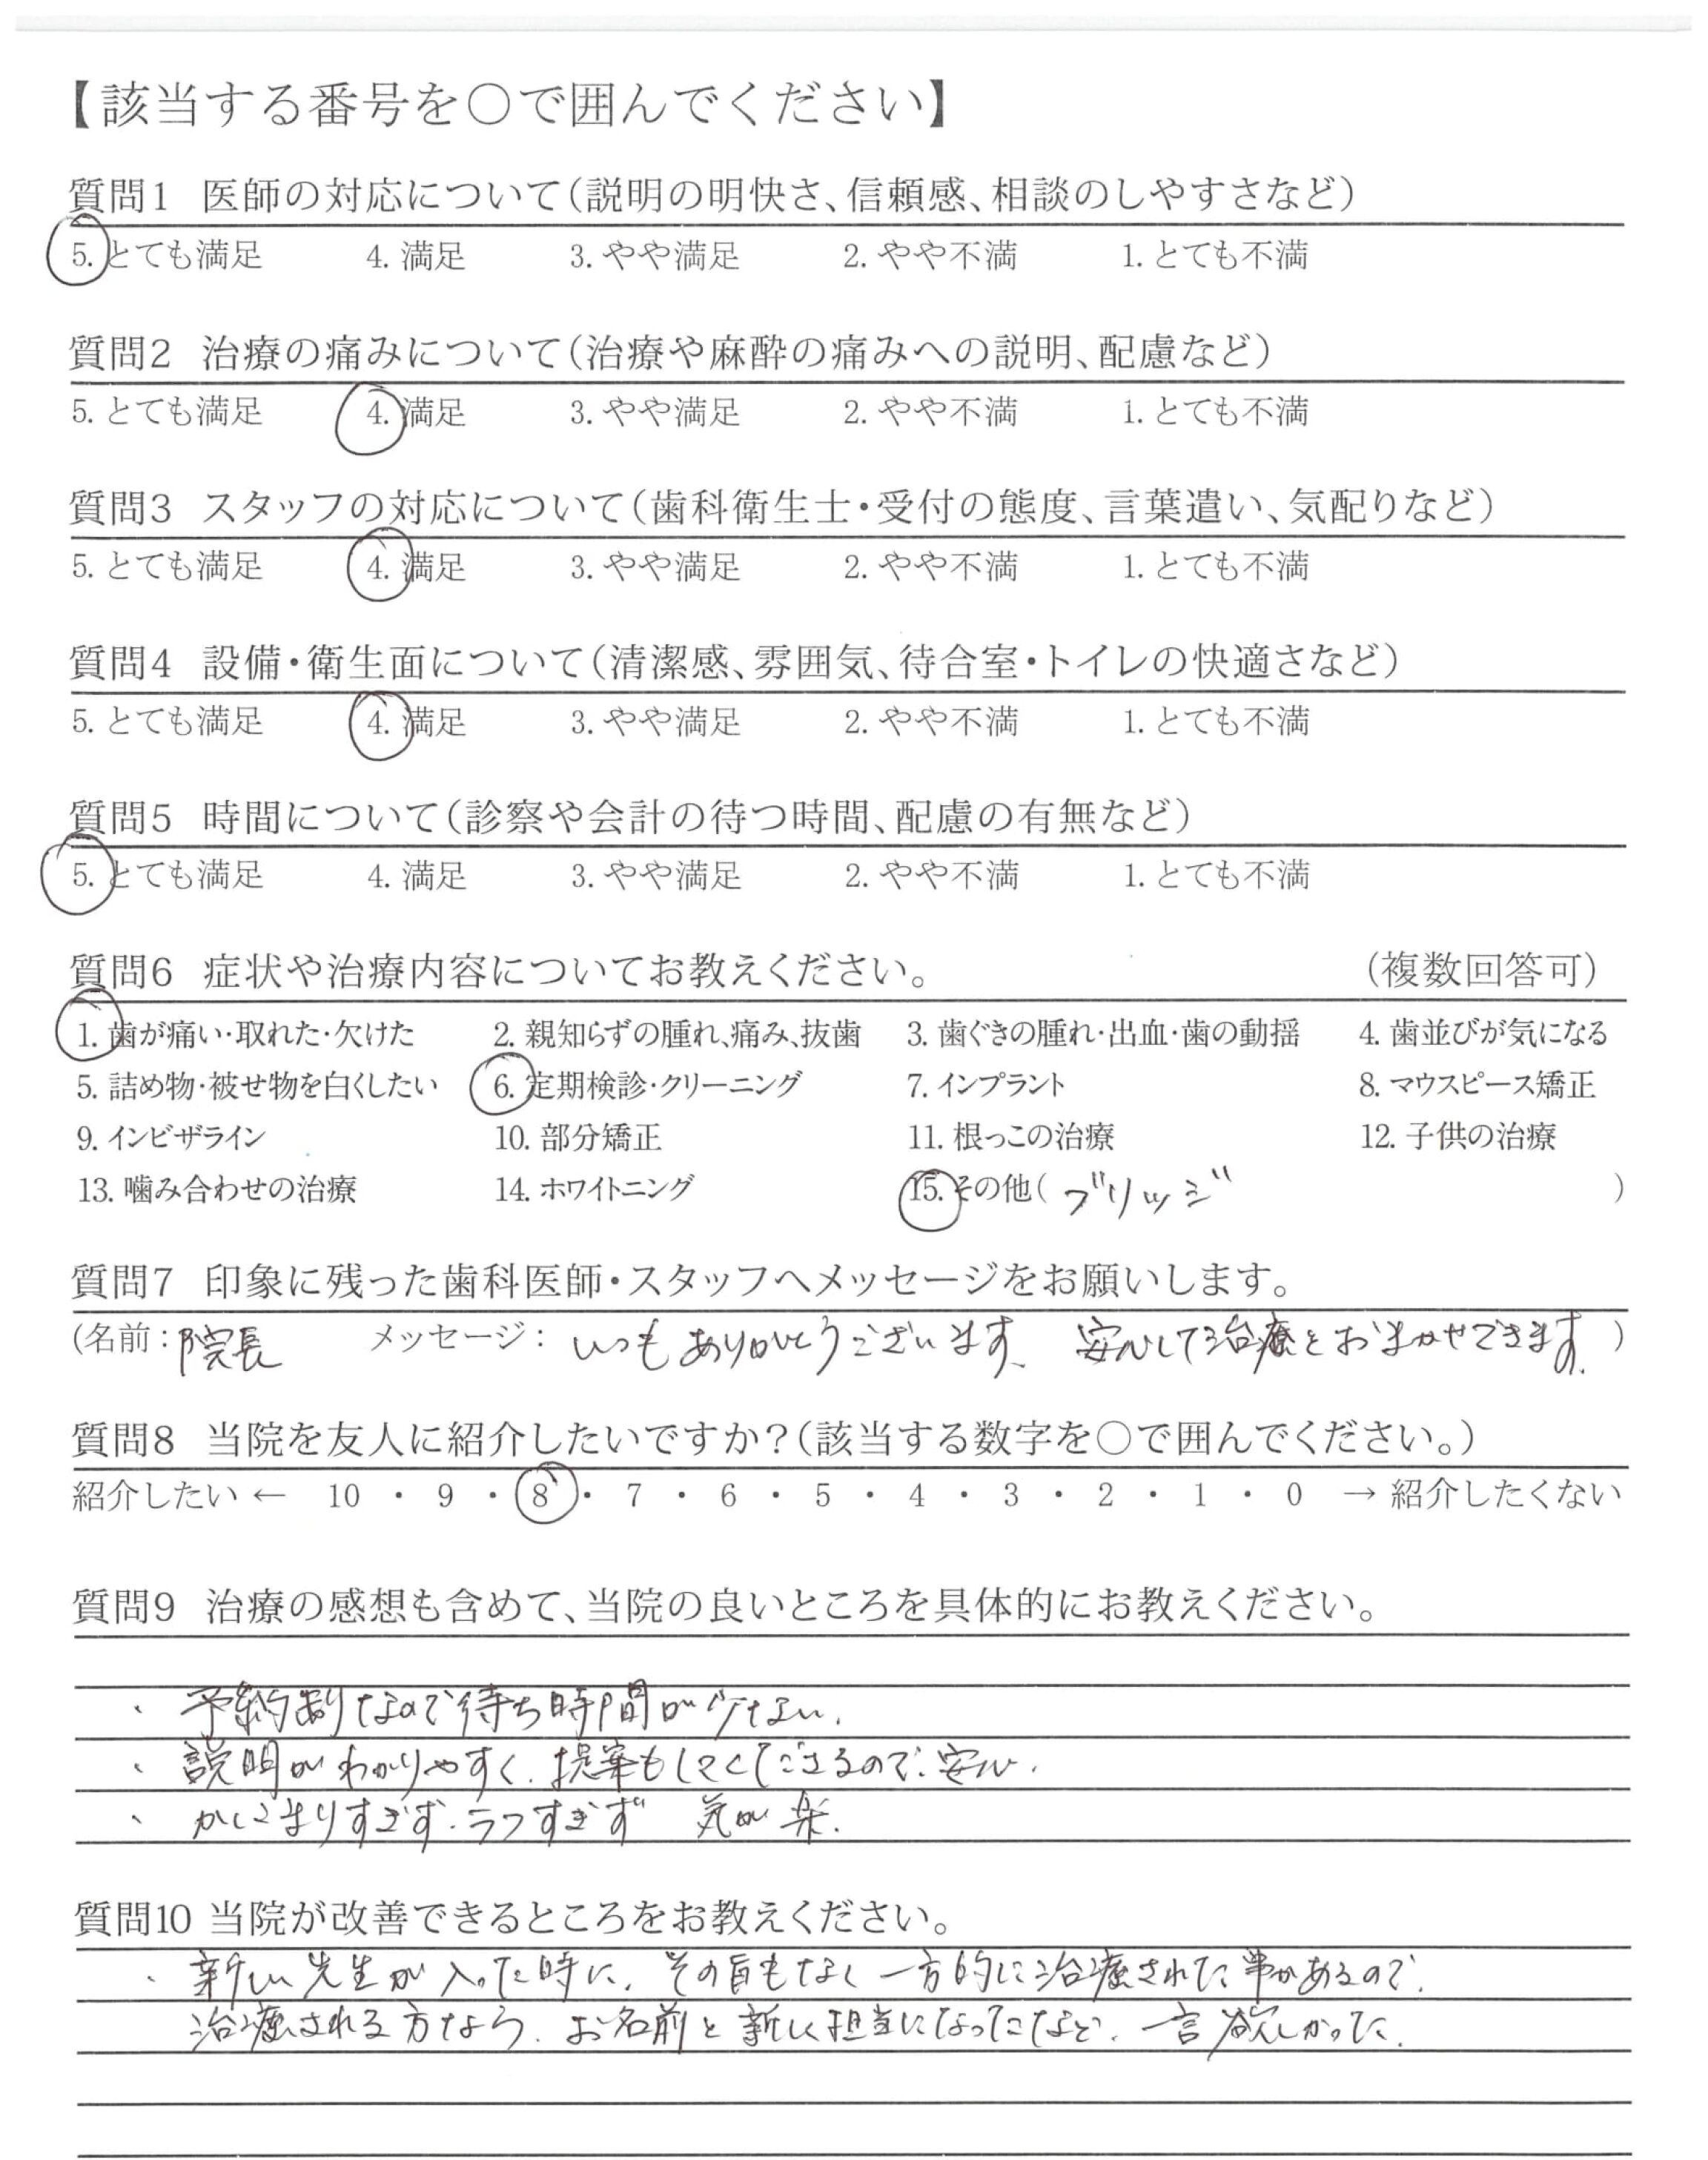 【該当する番号を○で囲んでください】
質問1 医師の対応について(説明の明快さ、信頼感、相談のしやすさなど)
5. とても満足 4. 満足 3. やや満足 2. やや不満 1. とても不満
質問2 治療の痛みについて(治療や麻酔の痛みへの説明、配慮など)
5. とても満足 4. 満足 3. やや満足 2. やや不満 1. とても不満
質問3 スタッフの対応について(歯科衛生士・受付の態度、言葉遣い、気配りなど)
5. とても満足 4. 満足 3. やや満足 2. やや不満 1. とても不満
質問4 設備・衛生面について(清潔感、雰囲気、待合室・トイレの快適さなど)
5. とても満足 4. 満足 3. やや満足 2. やや不満 1. とても不満
質問5 時間について(診察や会計の待つ時間、配慮の有無など)
5. とても満足 4. 満足 3. やや満足 2. やや不満 1. とても不満
質問6 症状や治療内容についてお教えください。 (複数回答可)
1. 歯が痛い・取れた・欠けた 2. 親知らずの腫れ、痛み、抜歯 3. 歯ぐきの腫れ・出血・歯の動揺 4. 歯並びが気になる
5. 詰め物・被せ物を白くしたい 6. 定期検診・クリーニング 7. インプラント 8. マウスピース矯正
9. インビザライン 10. 部分矯正 11. 根っこの治療 12. 子供の治療
13. 噛み合わせの治療 14. ホワイトニング 15. その他( ブリッジ )
質問7 印象に残った歯科医師・スタッフへメッセージをお願いします。
(名前 : 院長 メッセージ : いつもありがとうございます、 安心して治療をおまかせできます。)
質問8 当院を友人に紹介したいですか?(該当する数字を○で囲んでください。)
紹介したい ← 10 ・ 9 ・ 8 ・ 7 ・ 6 ・ 5 ・ 4 ・ 3 ・ 2 ・ 1 ・ 0 → 紹介したくない
質問9 治療の感想も含めて、当院の良いところを具体的にお教えください。
・ 予約制なので待ち時間が少ない。
・ 説明がわかりやすく、提案もしてくださるので、安心。
・ かしこまりすぎず、ラフすぎず 気が楽。
質問10 当院が改善できるところをお教えください。
・ 新しい先生が入った時に、その旨もなく一方的に治療された事があるので、
治療される方なら、お名前と新しく担当になったなど、一言欲しかった。